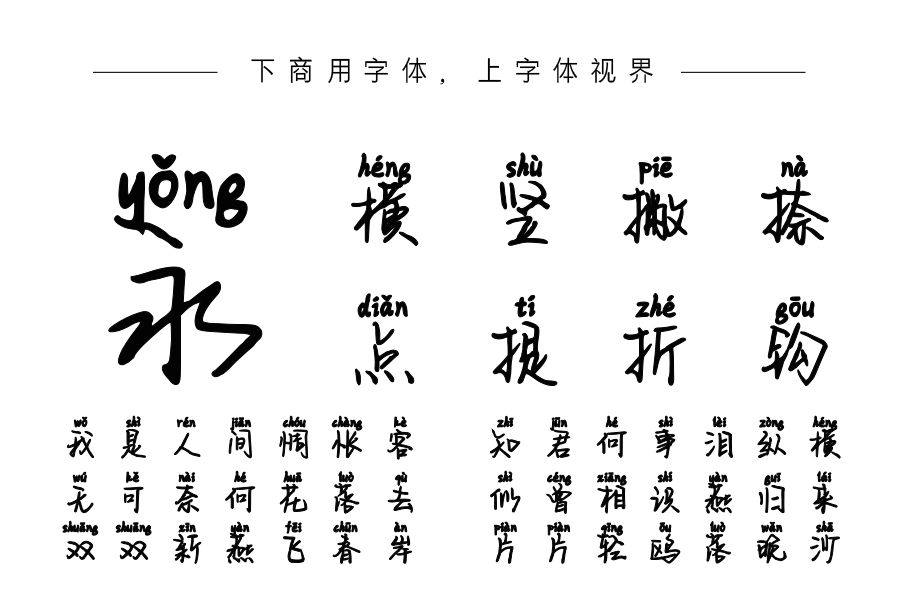 下商用字体，上字体视界
yǒng
héng shù piē nà
永
横 竖 撇 捺
diǎn tí zhé gōu
点 提 折 钩
wǒ shì rén jiān chóu chàng kè
我是人间惆怅客
zhī jūn hé shì lèi zòng héng
知君何事泪纵横
wú kě nài hé huā luò qù
无可奈何花落去
shì céng xiāng shí yàn guī lái
似曾相识燕归来
shuāng shuāng xīn yàn fēi chūn àn
双双新燕飞春岸
piàn piàn qīng ōu luò wǎn shā
片片轻鸥落晚沙